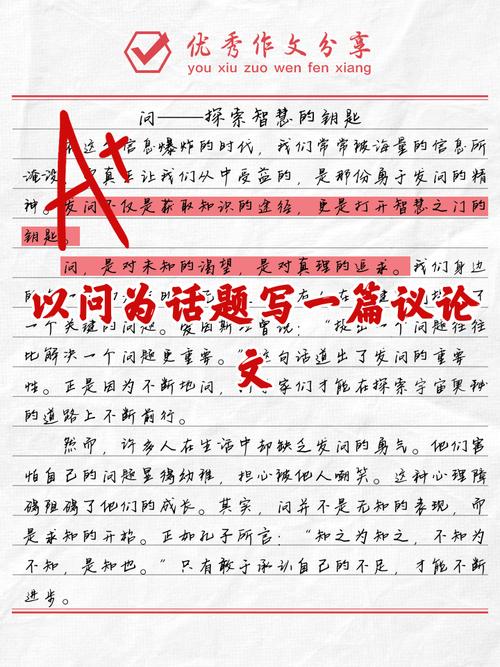 优秀作文分享
you xiu zuo wen fen xiang
问——探索智慧的钥匙
这个信息爆炸的时代，我们常常被海量的信息所
淹没 真正让我们从中受益的，是那份勇于发问的精
神。发问不仅是获取知识的途径，更是打开智慧之门的
钥匙。
A+
问，是对未知的渴望，是对真理的追求。我们身边
的
以问为话题写一篇议论
文
一个关键的问题。爱因斯 说：“提出一个问题往往
比解决一个问题更重要。” 句话道出了发问的重要
性。正是因为不断地问， 家们才能在探索宇宙奥秘
的道路上不断前行。
然而，许多人在生活中却缺乏发问的勇气。他们害
怕自己的问题显得幼稚，担心被他人嘲笑。这种心理障
碍阻碍了他们的成长。其实，问并不是无知的表现，而
是求知的开始。正如孔子所言：“知之为知之，不知为
不知，是知也。”只有敢于承认自己的不足，才能不断
进步。